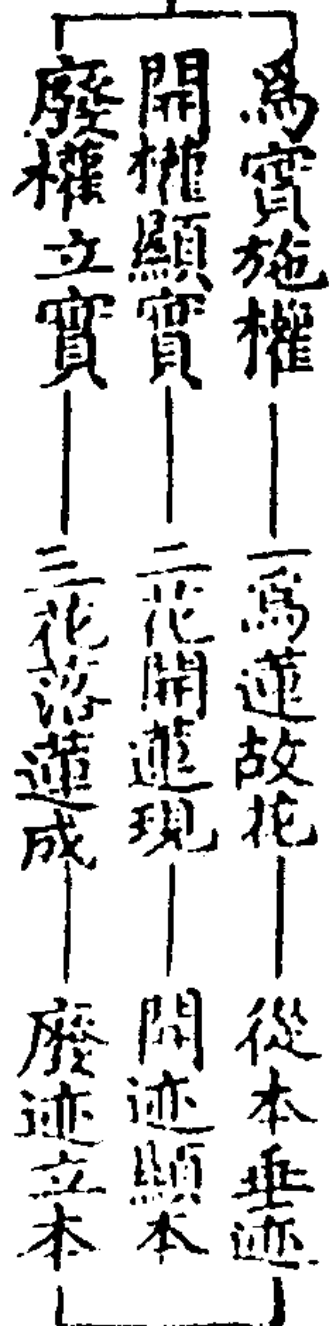 爲實施權 一爲蓮故花 從本垂迹
開權顯實 二花開蓮現 開迹顯本
廢權立實 三花落蓮成 廢迹立本